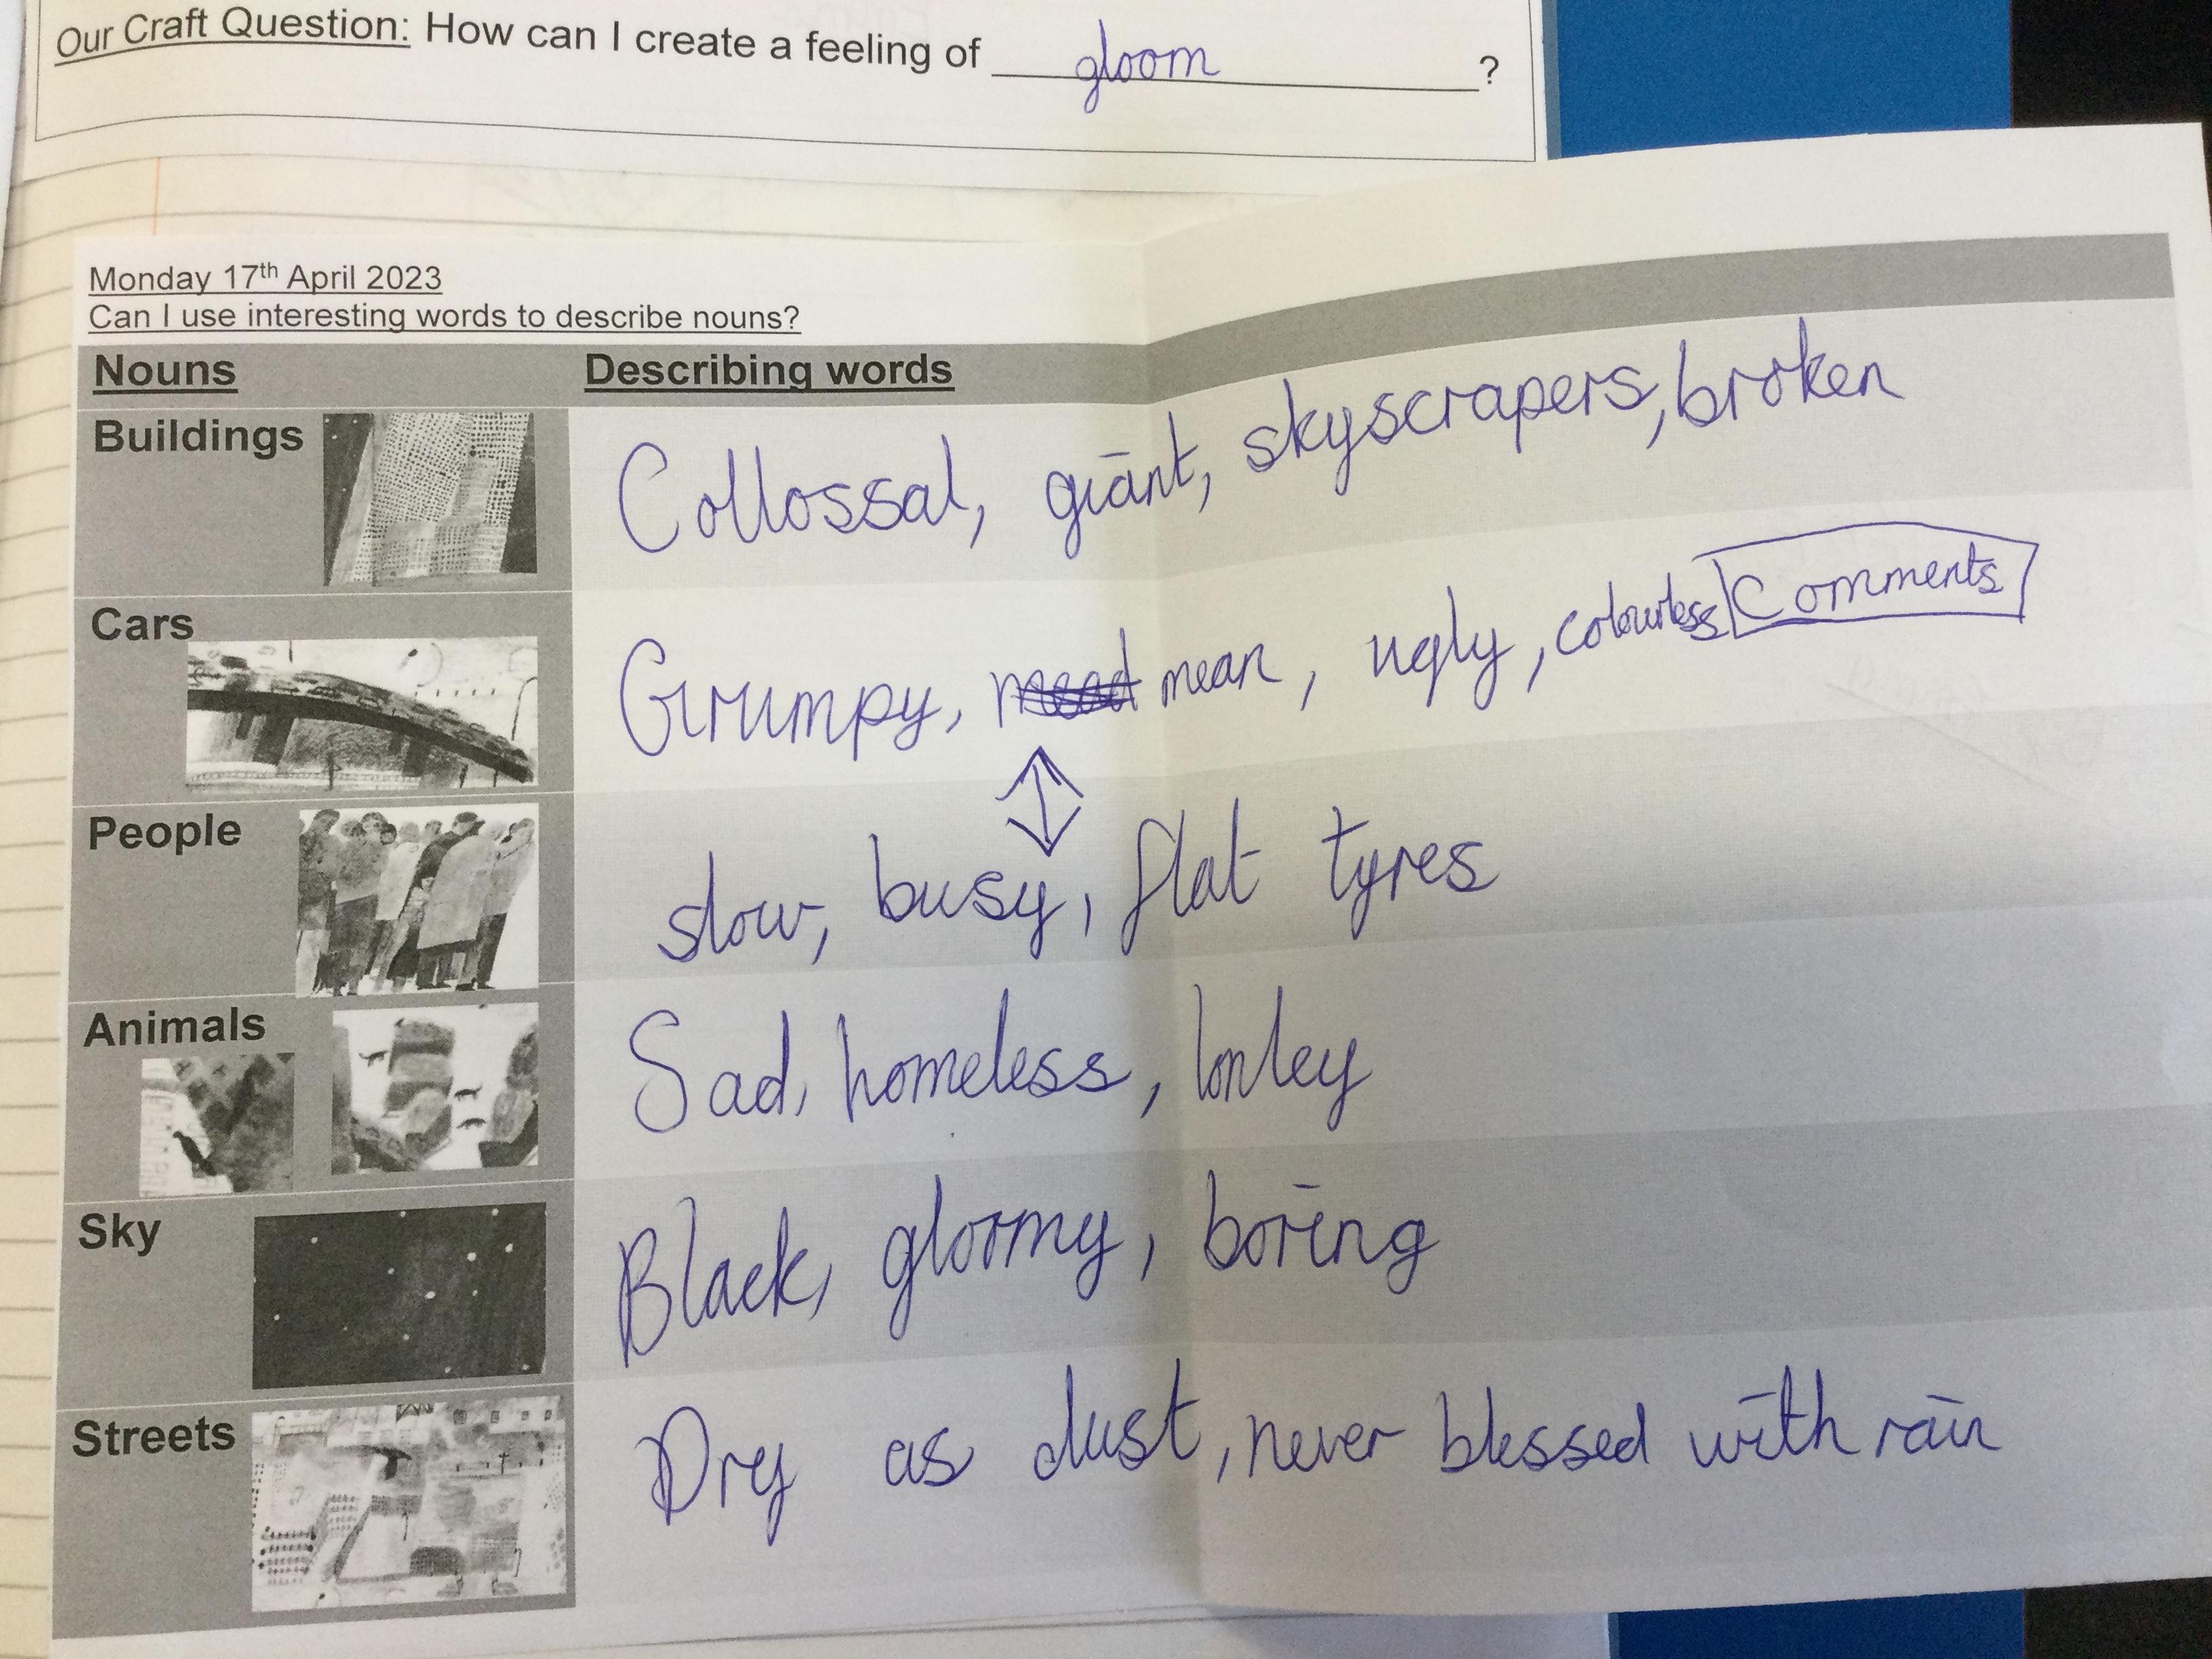 Our Craft Question: How can I create a feeling of gloom ?
Monday 17th April 2023
Can I use interesting words to describe nouns?
Nouns Describing words
Buildings Collossal, giant, skyscrapers, broken
Cars Grumpy, mean, ugly, colourless Comments
People slow, busy, flat tyres
Animals Sad, homeless, lonley
Sky Black, gloomy, boring
Streets Dry as dust, never blessed with rain